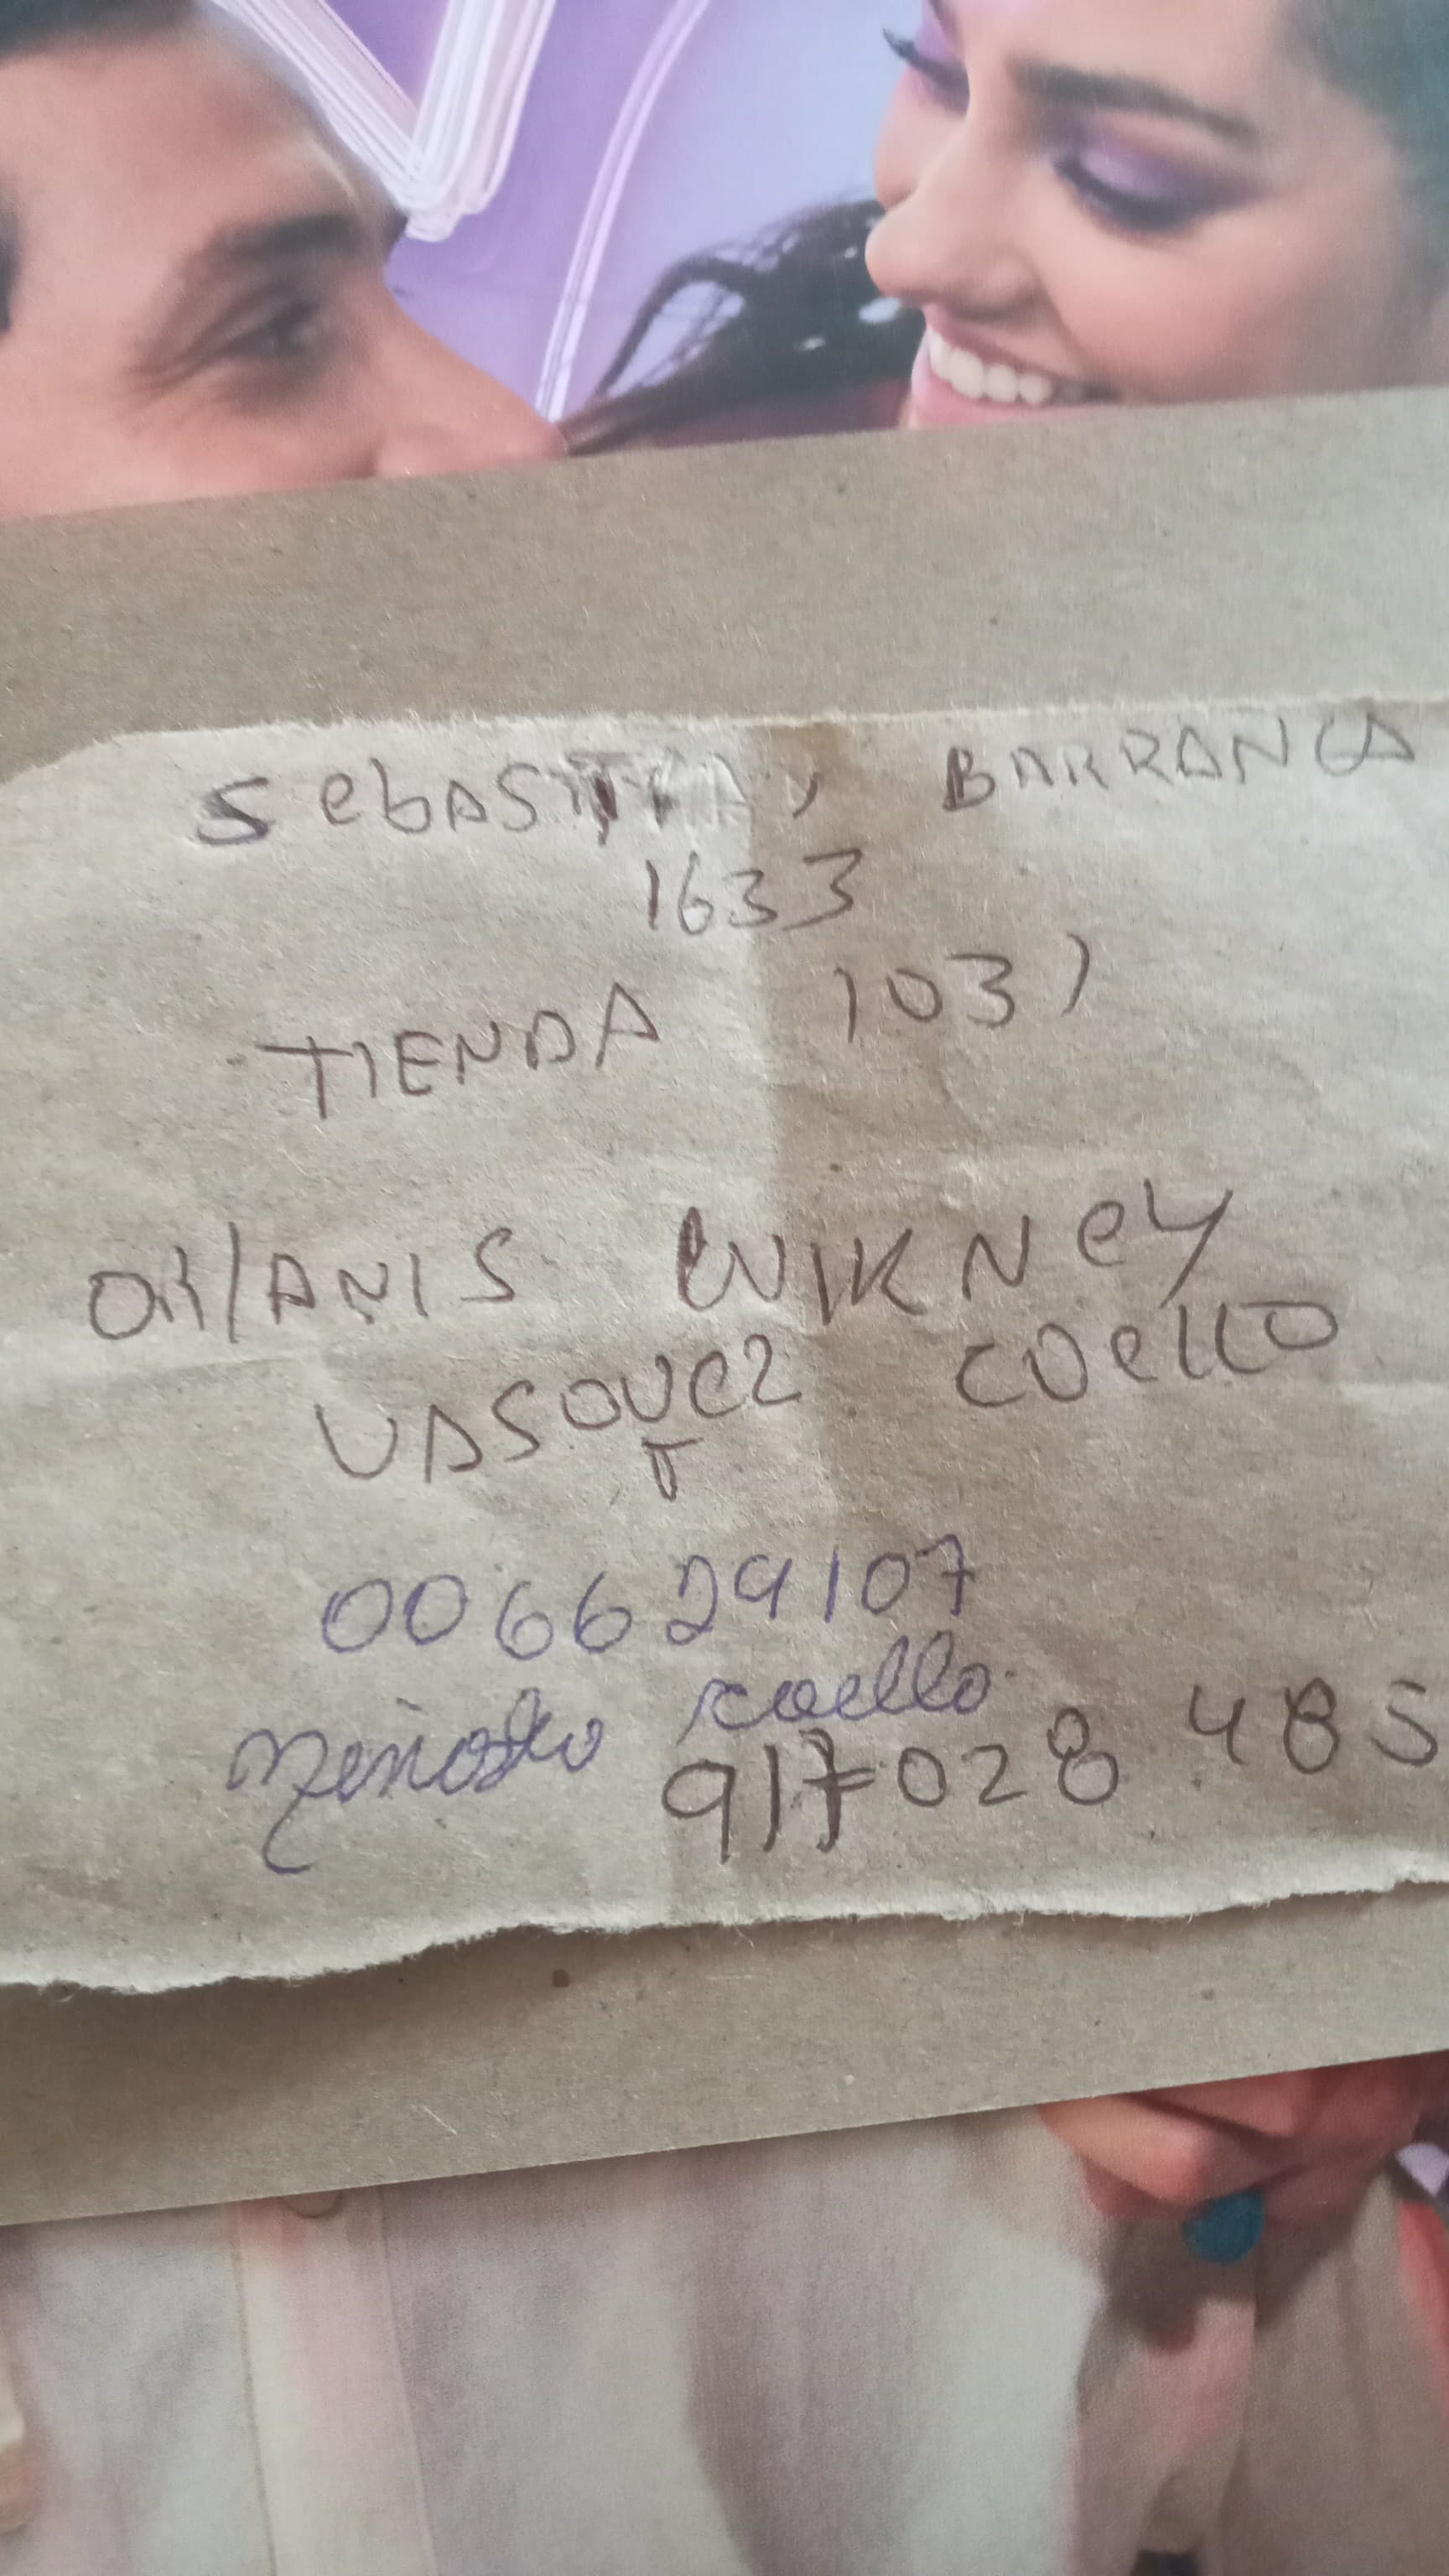 SebASTIAN BARRANCA
1633
TIENDA 1031
WIKNey
VASQUez COeLLO
006629107
coello
917028 485